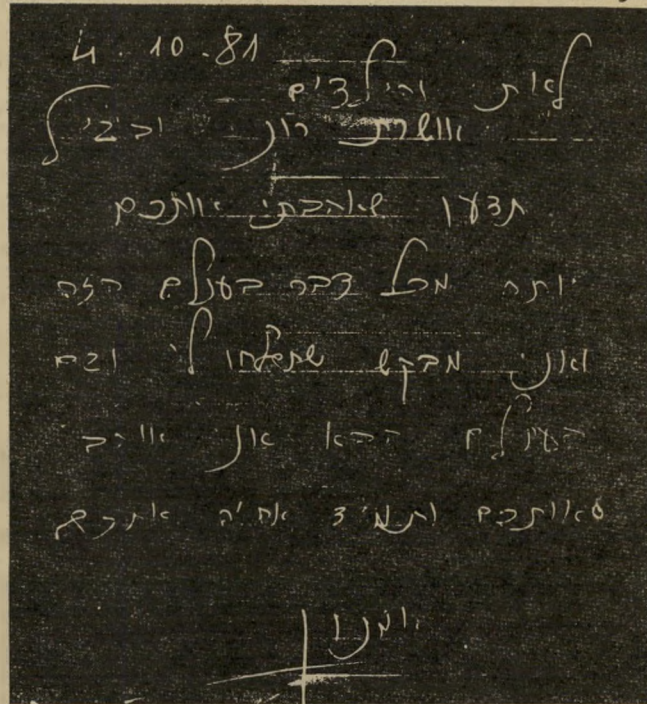 4.10.81
והילדים
רון
תדעו שאהבתי אותכם
יותר מכל דבר בעולם הזה
ואני מבקש שתסלחו לי וגם
העולם הבא אני אוהב
אותכם ותמיד אהיה אתכם
אמנון